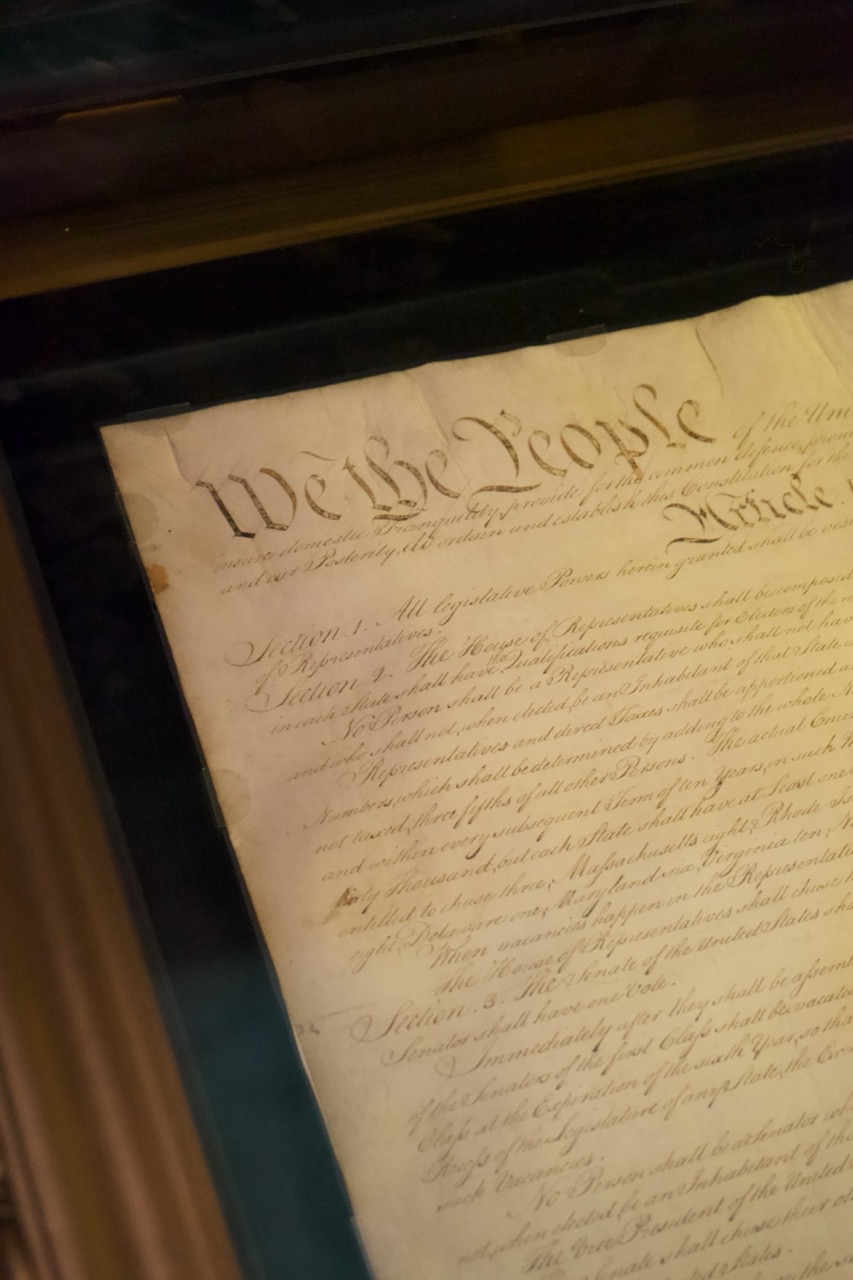 We the People of the Uni
insure domestic Tranquility, provide for the common defence, prom
and our Posterity, do ordain and establish this Constitution for the
Article.
Section. 1. All legislative Powers herein granted shall be ves
of Representatives.
Section. 2. The House of Representatives shall be compos
in each State shall have the Qualifications requisite for Electors of the
No Person shall be a Representative who shall not hav
and who shall not, when elected, be an Inhabitant of that State
Representatives and direct Taxes shall be apportioned a
Numbers, which shall be determined by adding to the whole N
not taxed, three fifths of all other Persons. The actual Enu
and within every subsequent Term of ten Years, in such
thirty Thousand, but each State shall have at Least one
entitled to chuse three, Massachusetts eight, Rhode Is
eight, Delaware one, Maryland six, Virginia ten, N
When vacancies happen in the Representati
The House of Representatives shall chuse
Section. 3. The Senate of the United States sha
Senator shall have one Vote.
Immediately after they shall be assemb
of the Senators of the first Class shall be vacate
Class at the Expiration of the sixth Year, so tha
Recess of the Legislature of any State, the Exe
such Vacancies.
No Person shall be a Senator who
not, when elected, be an Inhabitant of tha
The Vice President of the United
Senate shall chuse their ot
States.